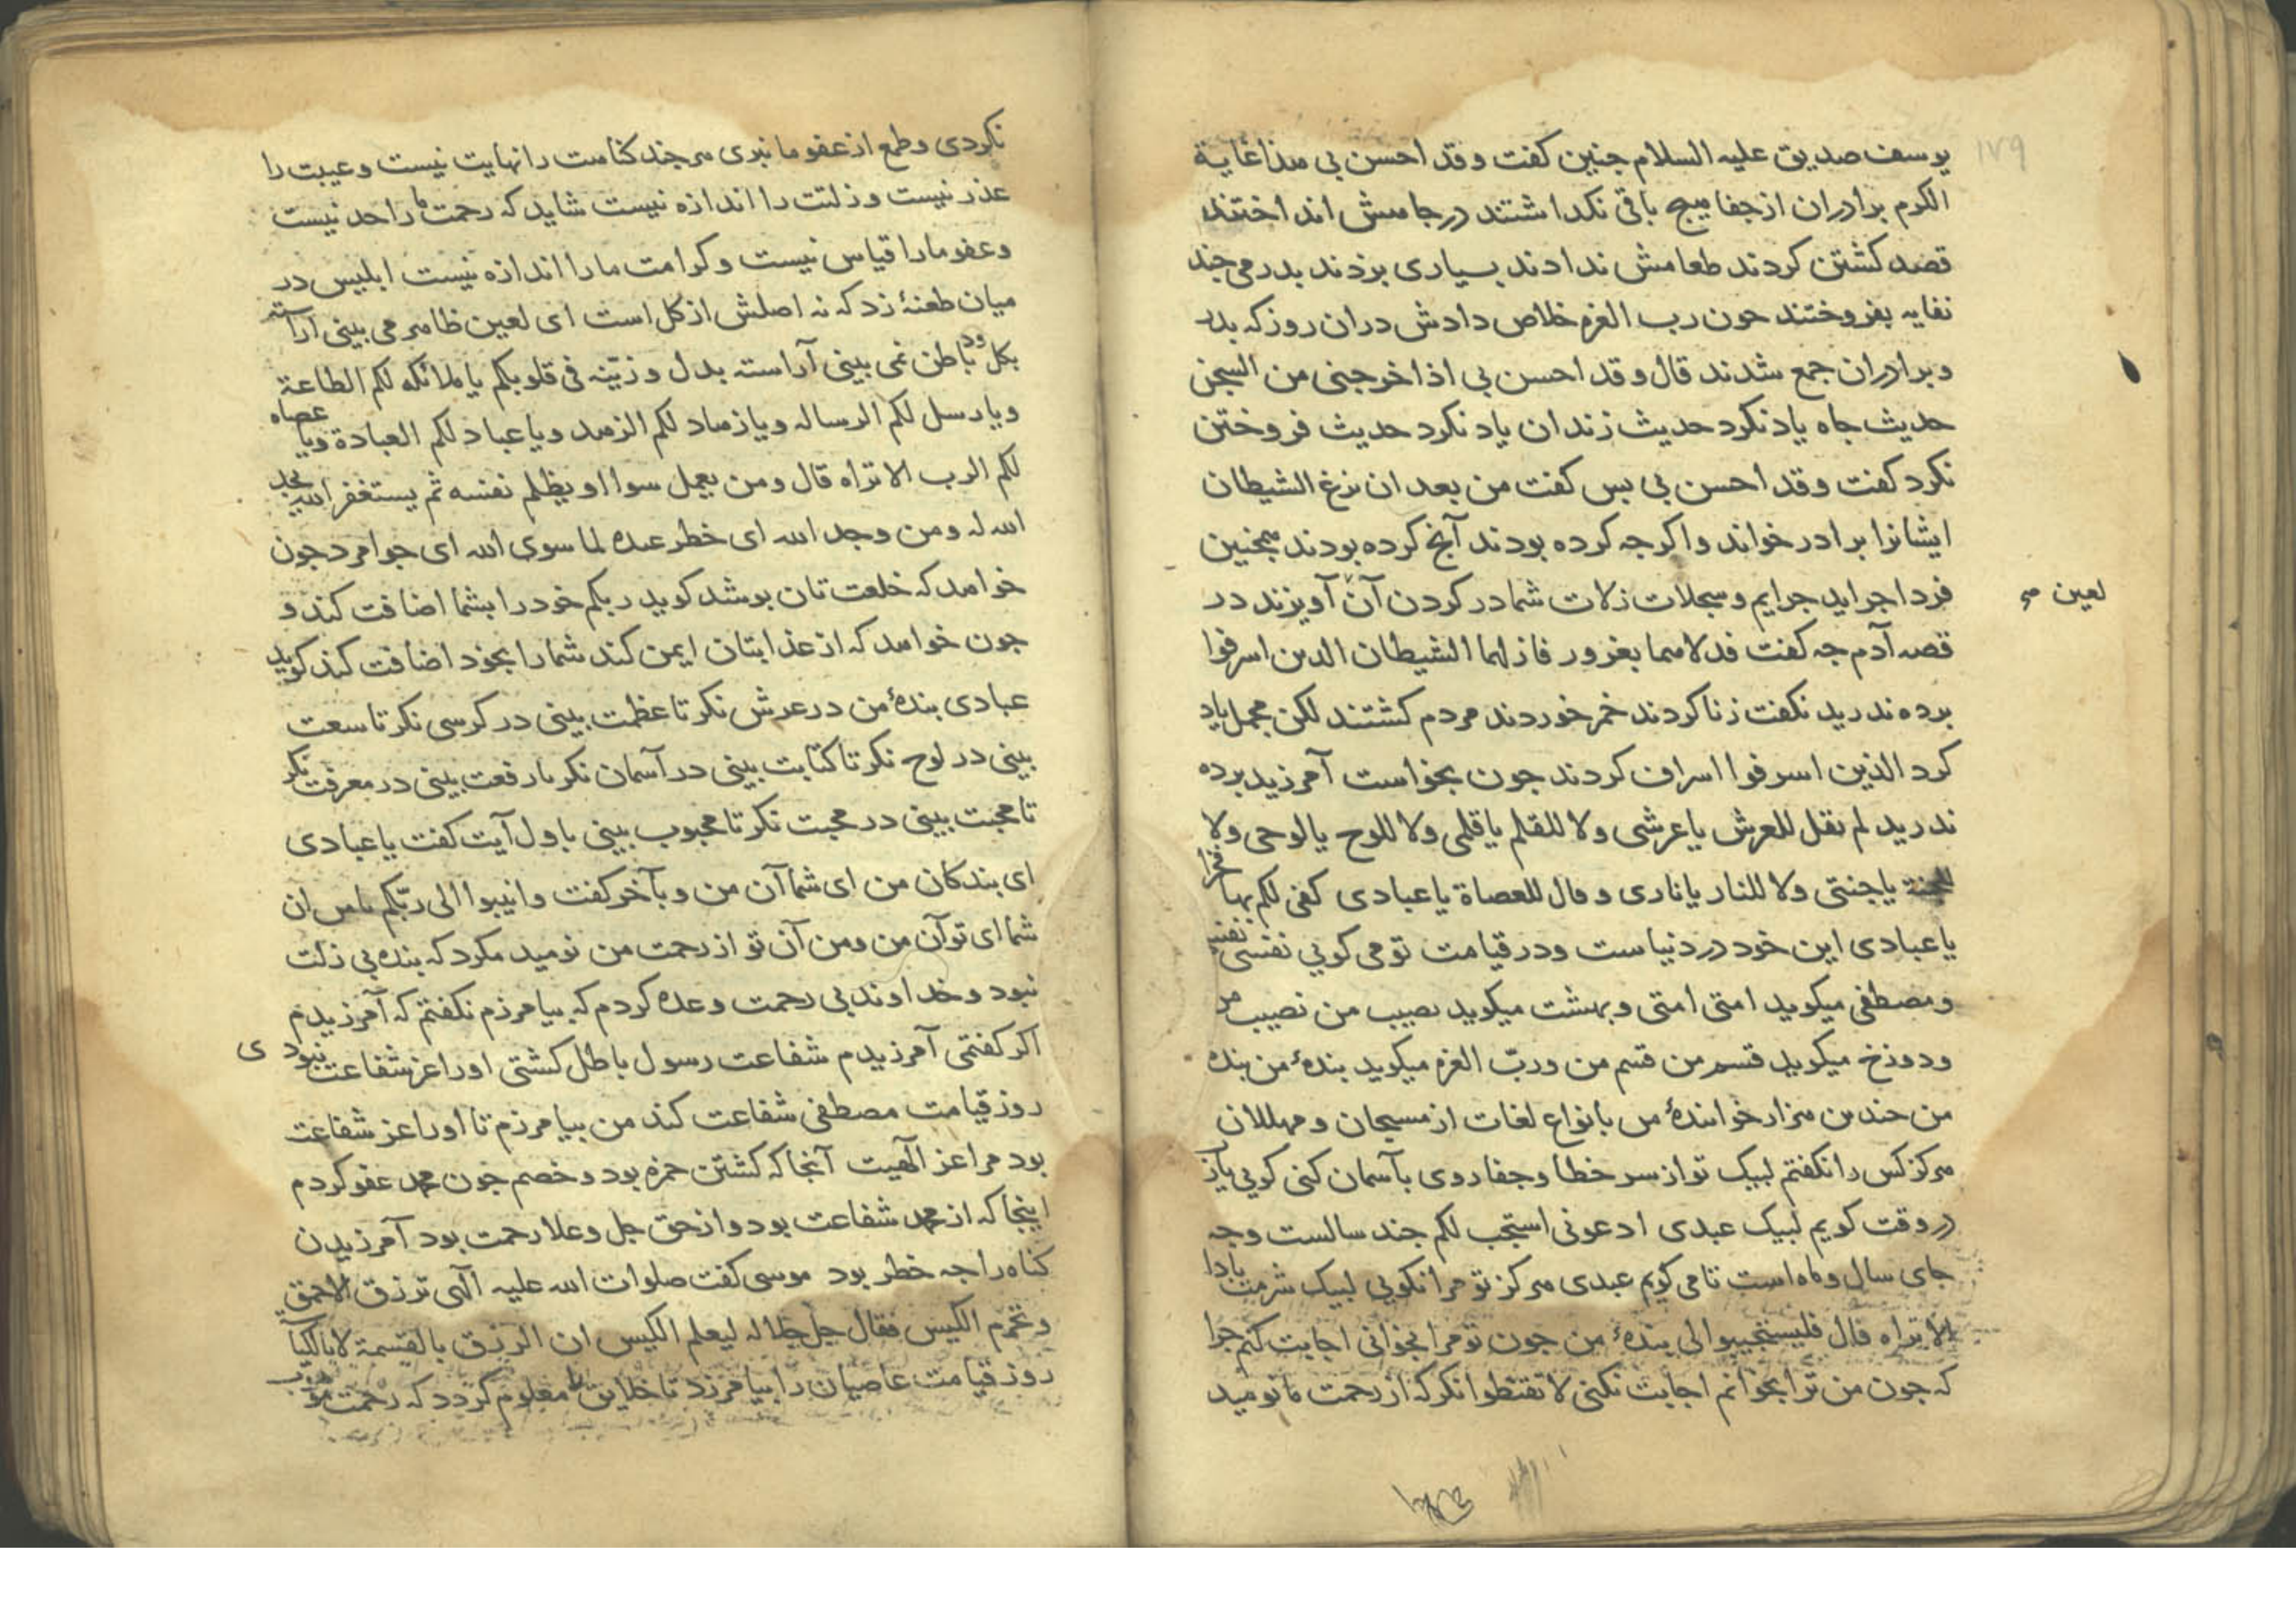 ۱۷۹
یوسف صدیق علیه السلام جنین کفت و قد احسن بی هذا غایة
الکرم برادران از جفا هیچ باقی نکذاشتند در جاهش انداختند
قصد کشتن کردند طعامش ندادند بسیاری بزدند بدرمی جند
نفایه بفروختند حون رب العزه خلاص دادش دران روز که بدر
و برادران جمع شدند قال و قد احسن بی اذا خرجنی من السجن
حدیث جاه یاد نکرد حدیث زندان یاد نکرد حدیث فروختن
نکرد کفت و قد احسن بی بس کفت من بعد ان نزغ الشیطان
ایشانرا برادر خواند و اکرجه کرده بودند آنج کرده بودند همجنین
فردا جراید جرایم و سجلات زلات شما در کردن آن آویزند در
لعین
قصه آدم جه کفت فدلاهما بغرور فازلهما الشیطان الدین اسرفوا
برده ندرید نکفت زنا کردند خمر خوردند مردم کشتند لکن مجمل یاد
کرد الذین اسرفوا اسراف کردند جون بخواست آمرزید برده
ندرید لم یقل للعرش یا عرشی ولا للقلم یا قلمی ولا للوح یا لوحی ولا
للجنة یا جنتی ولا للنار یا ناری و قال للعصاة یا عبادی کفی لکم بها فخرا
یا عبادی این خود در دنیاست و در قیامت تو می کویی نفسی نفسی
و مصطفی میکوید امتی امتی و بهشت میکوید نصیب من نصیب من
و دوزخ میکوید قسم من قسم من و ربّ العزه میکوید بندهٔ من بنده
من جندین هزار خوانندهٔ من بانواع لغات از مسبحان و مهللان
هرکز کس را نکفتم لبیک تو از سر خطا و جفا روی بآسمان کنی کویی یارب
در وقت کویم لبیک عبدی ادعونی استجب لکم جند سالست و جه
جای سال و ماه است تا می کویم عبدی هرکز تو مرا نکویی لبیک شرمت بادا
الا تراه قال فلیستجیبوا لی بندهٔ من جون تو مرا بخوانی اجابت کنم جرا
که جون من ترا بخوانم اجابت نکنی لا تقنطوا نکر که از رحمت ما نومید
نکردی و طمع از عفو ما نبری هر جند کناهت را نهایت نیست و عیبت را
عذر نیست و زلتت را اندازه نیست شاید که رحمت ما را حد نیست
و عفو ما را قیاس نیست و کرامت ما را اندازه نیست ابلیس در
میان طعنهٔ زد که نه اصلش از کل است ای لعین ظاهر می بینی آراسته
بکل و د باطن نمی بینی آراسته بدل و زیّنه فی قلوبکم یا ملائکه لکم الطاعة
و یا رسل لکم الرساله و یا زهاد لکم الزهد و یا عباد لکم العبادة و یا عصاه
لکم الرب الا تراه قال و من یعمل سوا او یظلم نفسه ثم یستغفر الله یجد
الله له و من وجد الله ای خطر عنده لما سوی الله ای جوامرد جون
خواهد که خلعت تان بوشد کوید ربکم خود را بشما اضافت کند و
جون خواهد که از عذابتان ایمن کند شما را بخود اضافت کند کوید
عبادی بندهٔ من در عرش نکر تا عظمت بینی در کرسی نکر تا سعت
بینی در لوح نکر تا کتابت بینی در آسمان نکر تا رفعت بینی در معرفت نکر
تا محبت بینی در محبت نکر تا محبوب بینی باول آیت کفت یا عبادی
ای بندکان من ای شما آن من و بآخر کفت و انیبوا الی ربّکم یا من ان
شما ای تو آن من و من آن تو از رحمت من نومید مکرد که بنده بی زلت
نبود و خداوند بی رحمت وعده کردم که بیامرزم نکفتم که آمرزیدم
اکر کفتمی آمرزیدم شفاعت رسول باطل کشتی او را عز شفاعت نبودی
روز قیامت مصطفی شفاعت کند من بیامرزم تا او را عز شفاعت
بود مرا عز الهیت آنجا که کشتن حمزه بود و خصم جون محمد عفو کردم
اینجا که از محمد شفاعت بود و از حق جل و علا رحمت بود آمرزیدن
کناه را جه خطر بود موسی کفت صلوات الله علیه الهی ترزق الاحمق
و تحرم الکیس فقال جل جلاله لیعلم الکیس ان الرزق بالقسمة لا بالکیاسة
روز قیامت عاصیان را بیامرزد تا خلایق معلوم کردد که رحمت